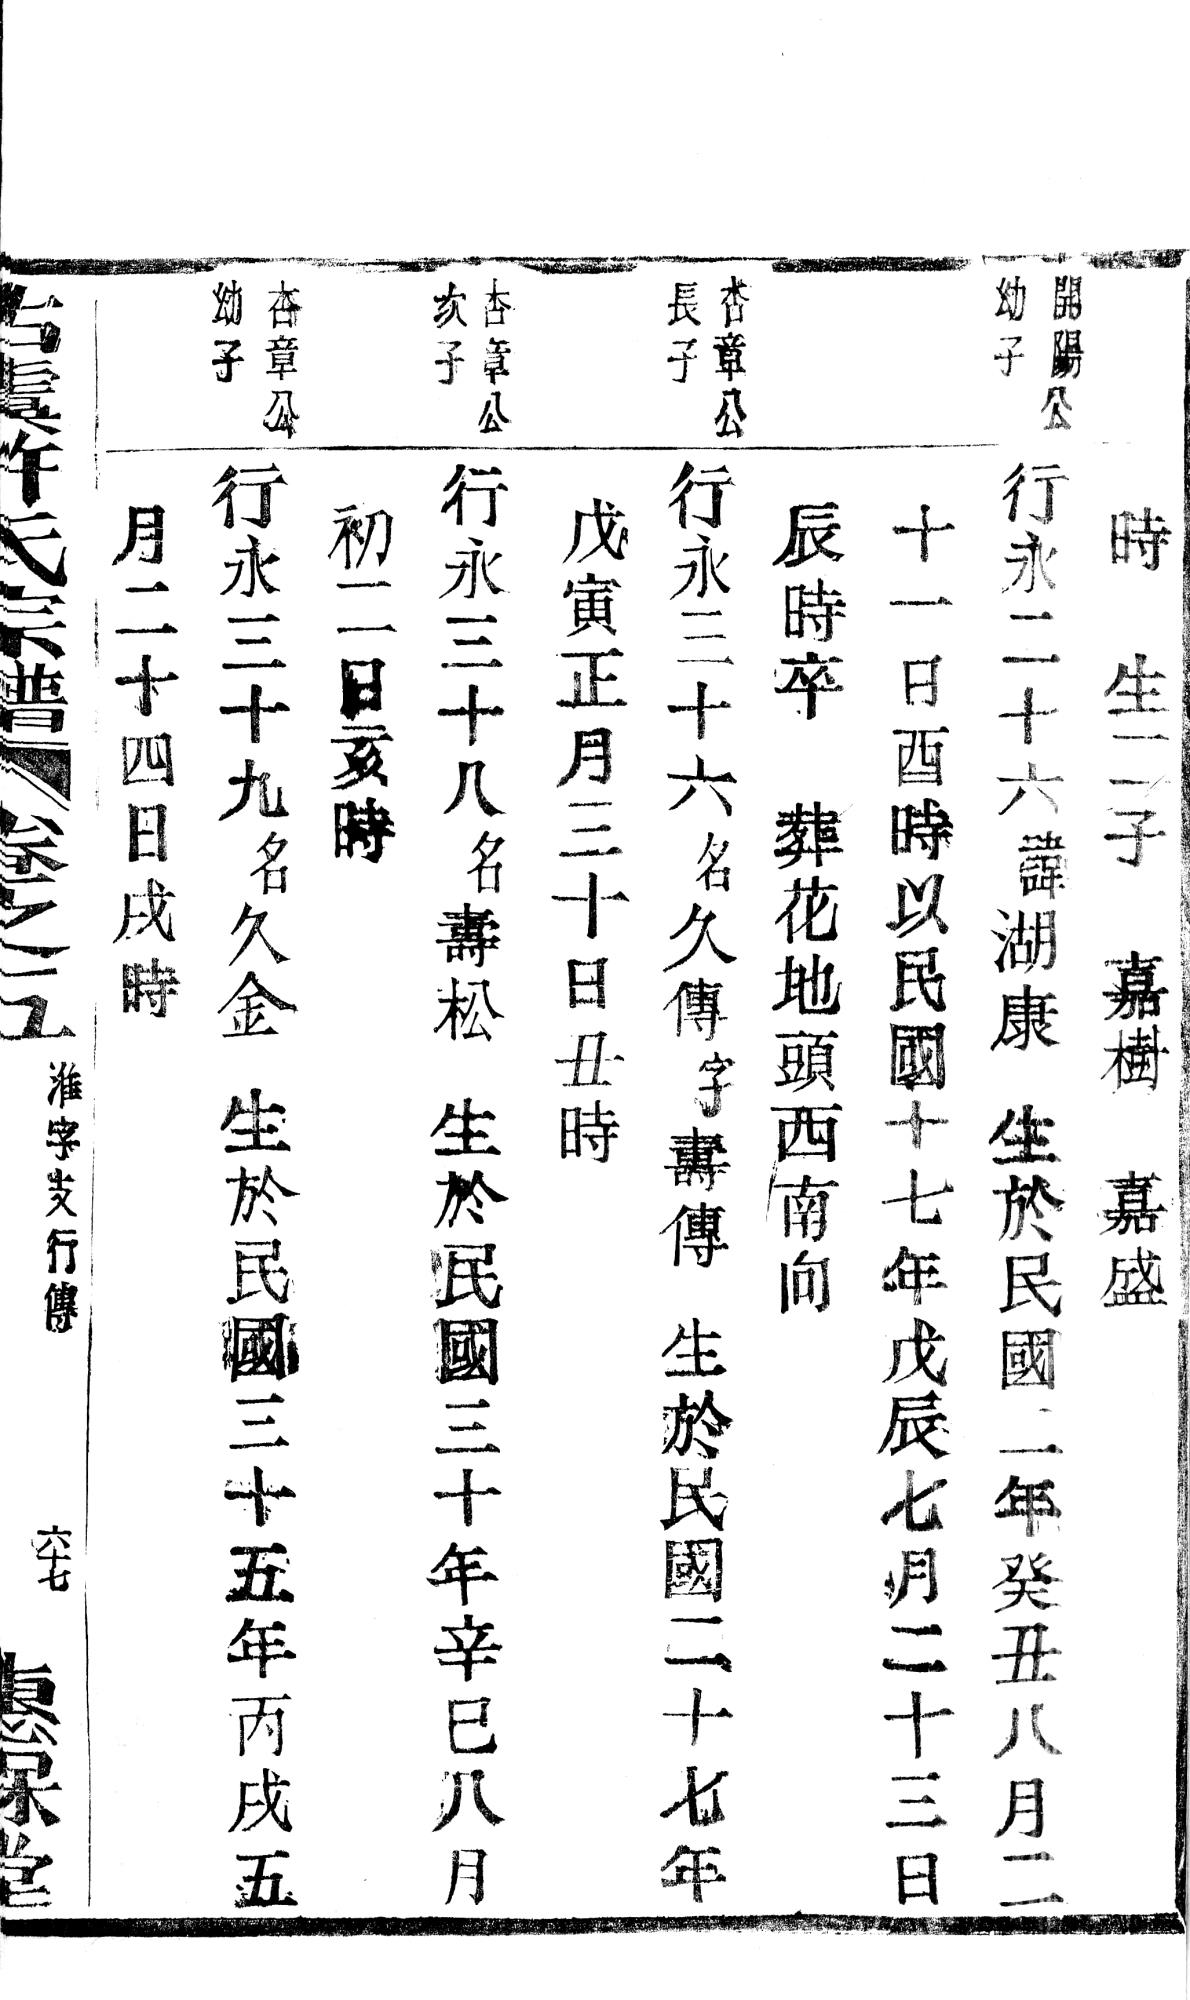 時　生二子　嘉樹　嘉盛
開陽公
幼子
行永二十六諱湖康　生於民國二年癸丑八月二
十一日酉時以民國十七年戊辰七月二十三日
辰時卒　葬花地頭西南向
杏章公
長子
行永三十六名久傳字壽傳　生於民國二十七年
戊寅正月三十日丑時
杏章公
次子
行永三十八名壽松　生於民國三十年辛巳八月
初二日亥時
杏章公
幼子
行永三十九名久金　生於民國三十五年丙戌五
月二十四日戌時
古虞許氏宗譜　卷之五　淮字支行傳　六十七　惠保堂